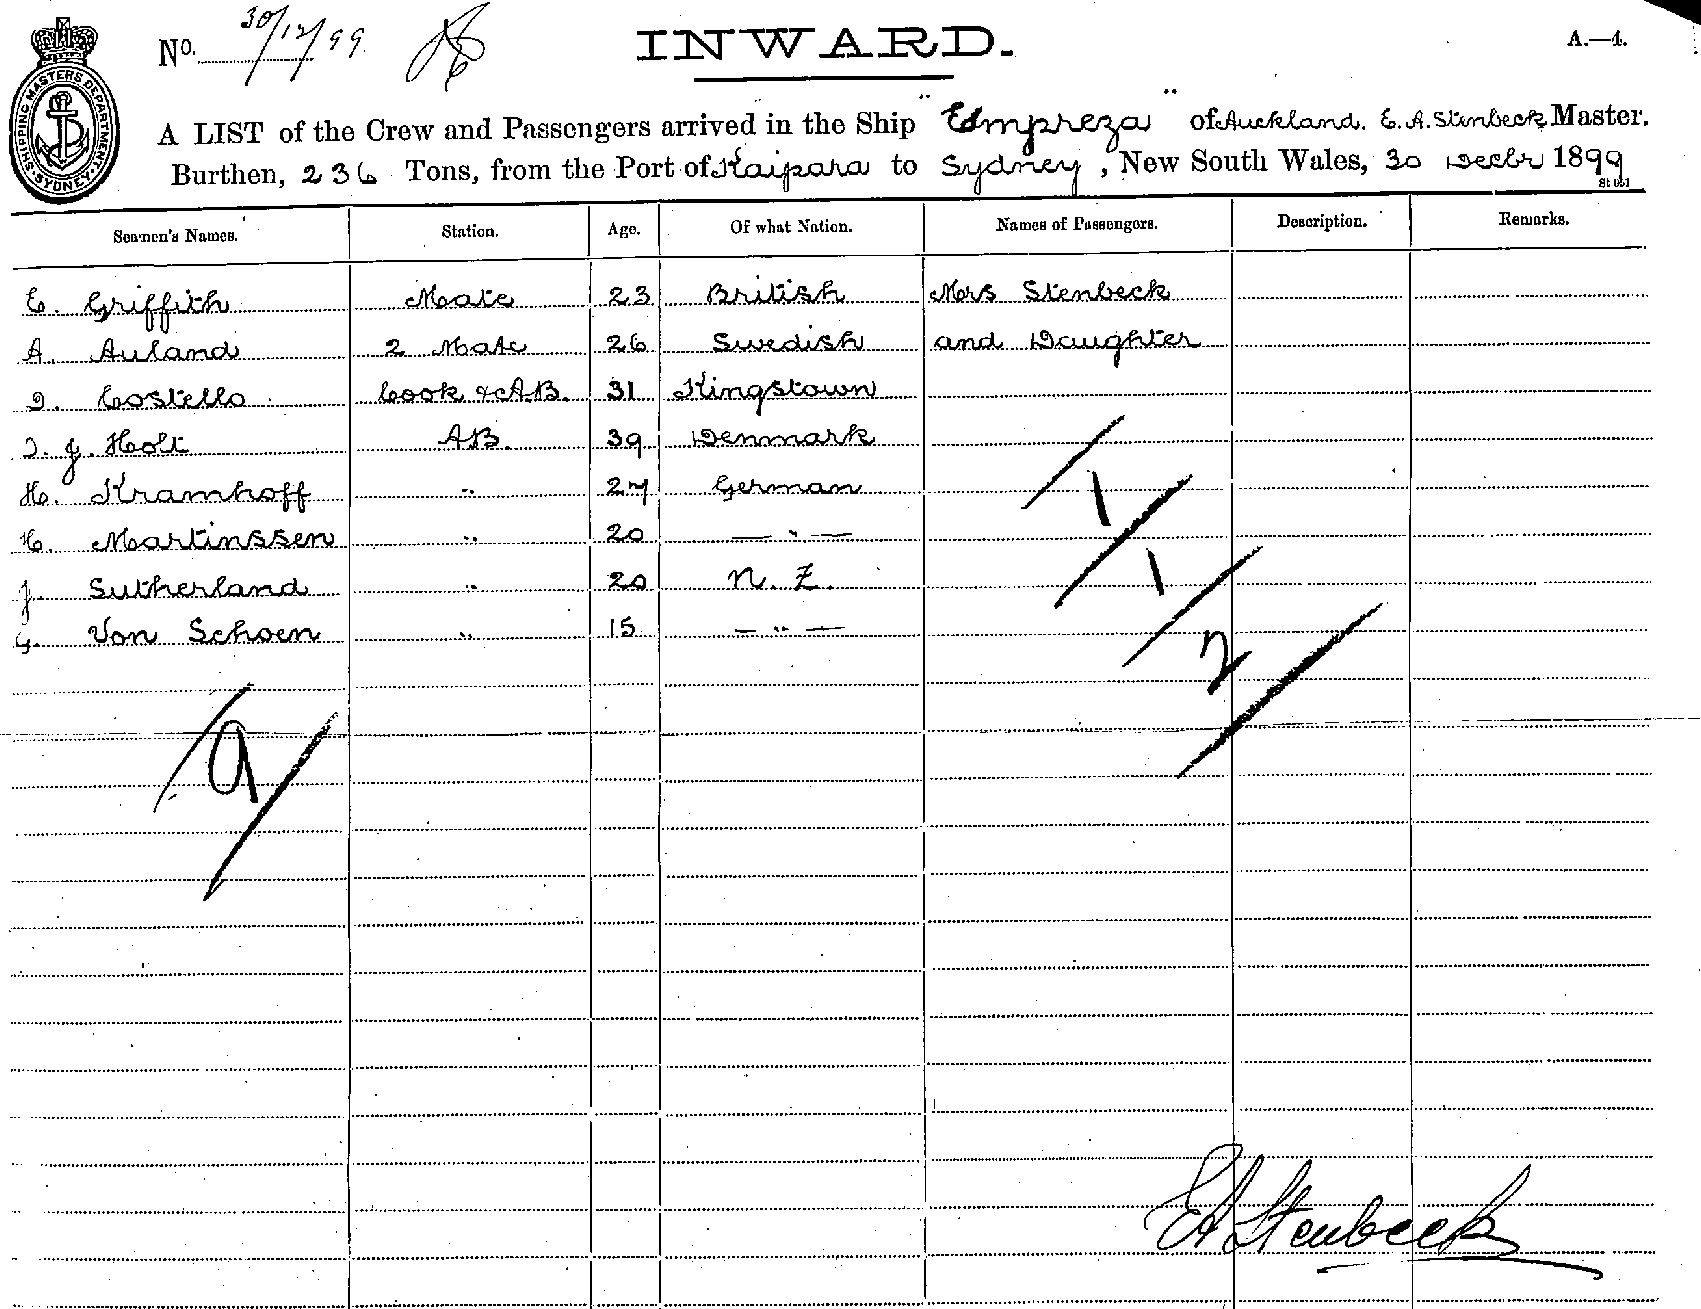 No. 30/12/99
INWARD.
A.—4.
SHIPPING MASTERS DEPARTMENT SYDNEY
A LIST of the Crew and Passengers arrived in the Ship "Empreza" of Auckland. E. A. Stenbeck Master.
Burthen, 236 Tons, from the Port of Kaipara to Sydney, New South Wales, 30 Decbr 1899
Seamen's Names. Station. Age. Of what Nation. Names of Passengers. Description. Remarks.
E. Griffith Mate 23 British Mrs Stenbeck
A. Auland 2 Mate 26 Swedish and Daughter
Costello Cook & AB. 31 Kingstown
J. Holt AB. 39 Denmark
H. Kramhoff " 27 German
H. Martinssen " 20 — " —
J. Sutherland " 20 N. Z.
G. Von Schoen " 15 — " —
1
1
2
9
EA Stenbeck